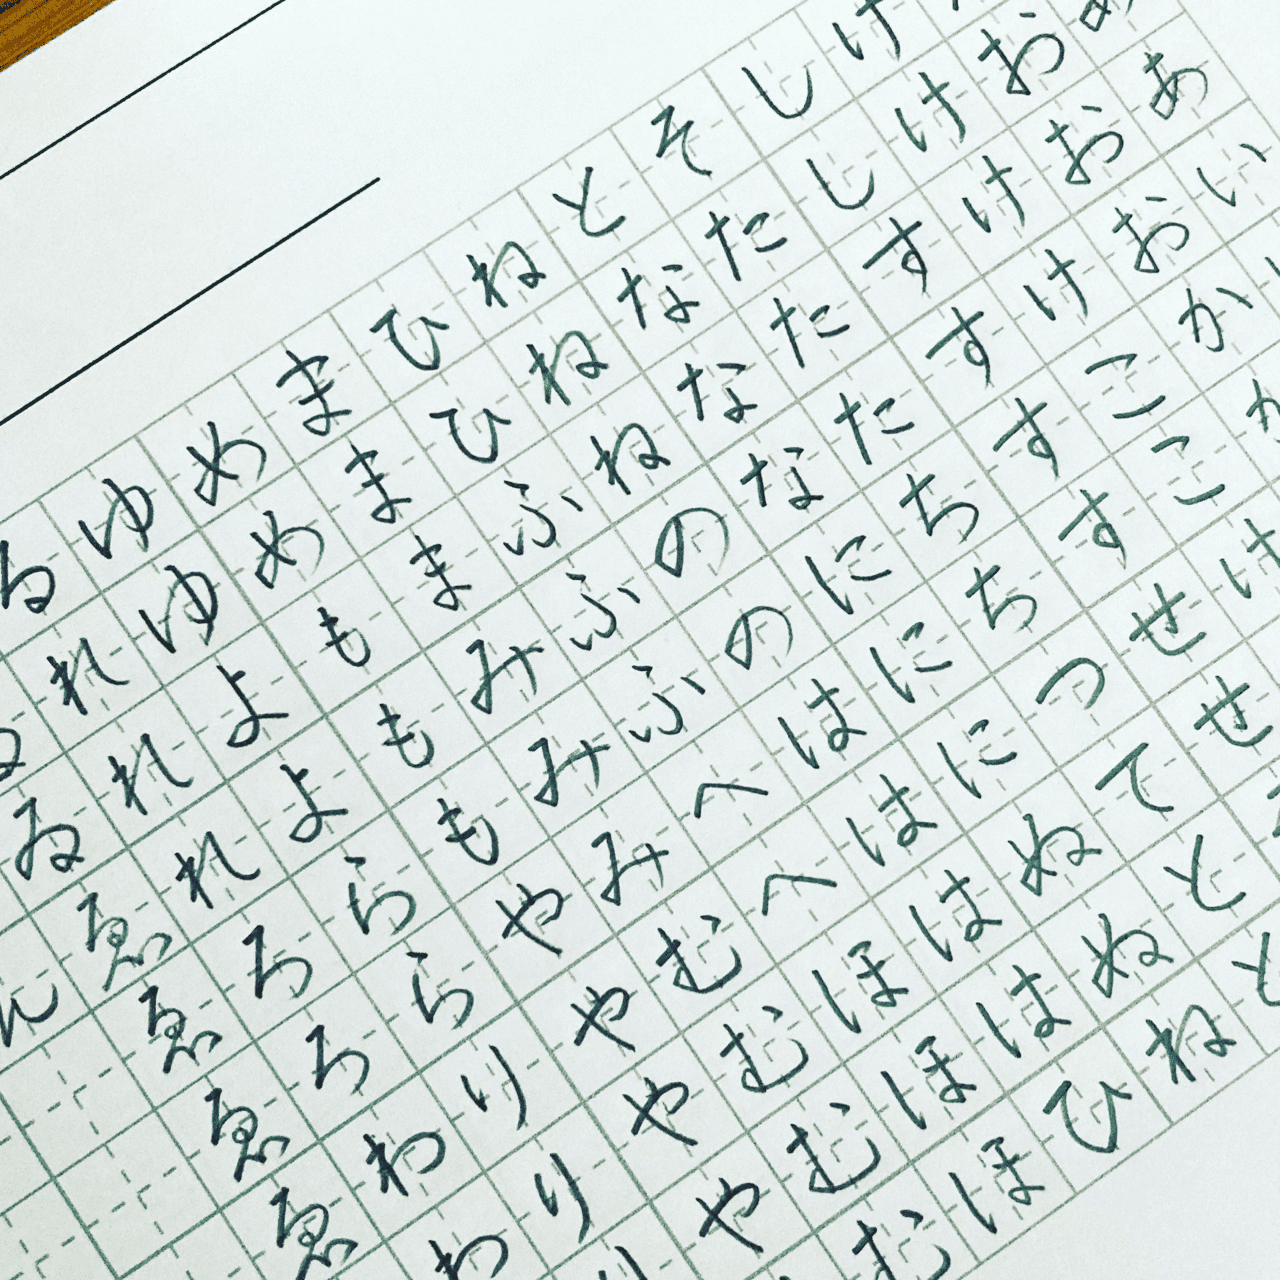 ああい
おおおか
けけけけここけ
ししすすすすせせ
そたたたちちつてとと
となななにににぬぬね
ねねねののははははひ
ひひふふふへへほほほ
まままみみみむむむむ
めめもももやややや
ゆゆよよららりり
るれれれろろわわ
ゐゑゑゑゑ
ん